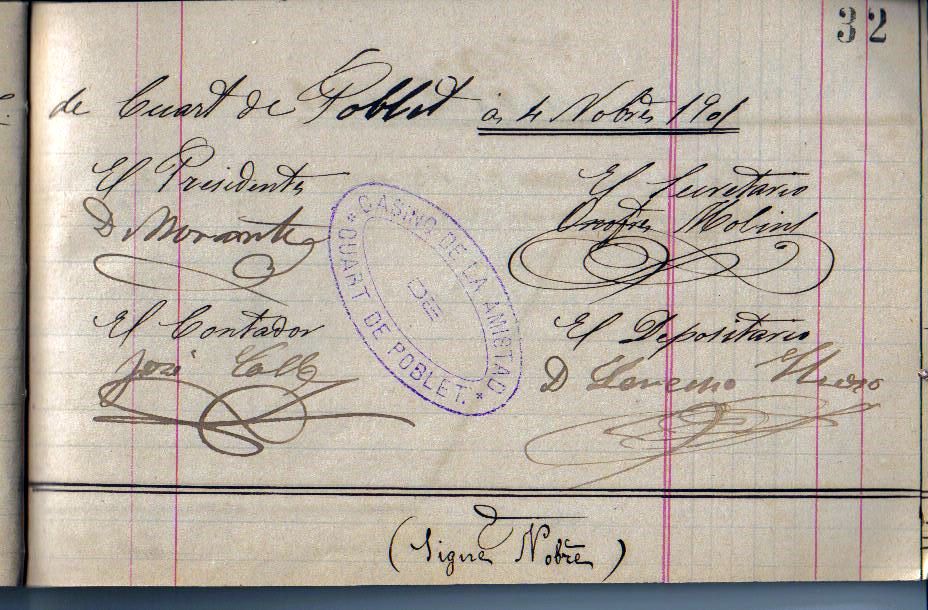 32
de Cuart de Poblet á 4 Nobre 1901
El Presidente
D Morante
El Secretario
Onofre Molins
CASINO DE LA AMISTAD
DE
CUART DE POBLET.
El Contador
José Valls
El Depositario
D Lorenzo
(Sigue Nobre)